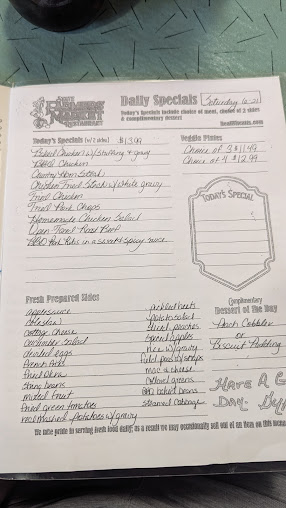 THE
FARMERS
MARKET
RESTAURANT
Daily Specials Saturday 6-21
Today's Specials include choice of meat, choice of 2 sides
& complimentary dessert
Today's Specials (w/2 sides) $13.99
Baked Chicken w/stuffing + gravy
BBQ Chicken
Country Ham Steak
Chicken Fried Steak w/white gravy
Fried Chicken
Fried Pork Chops
Homemade Chicken Salad
Open Faced Roast Beef
BBQ Pork Ribs in a sweet + spicy sauce
Veggie Plates
Choice of 3 $11.49
Choice of 4 $12.99
TODAY'S SPECIAL
Fresh Prepared Sides
applesauce
coleslaw
cottage cheese
cucumber salad
deviled eggs
french fries
fried okra
string beans
mixed fruit
fried green tomatoes
real mashed potatoes w/gravy
pickled beets
potato salad
sliced peaches
spiced apples
rice w/gravy
field peas w/snaps
mac & cheese
collard greens
BBQ baked beans
steamed cabbage
Complimentary
Dessert of the Day
Peach Cobbler
or
Biscuit Pudding
HAVE A G
DAY.
We take pride in serving fresh food daily; as a result we may occasionally sell out of an item on this menu